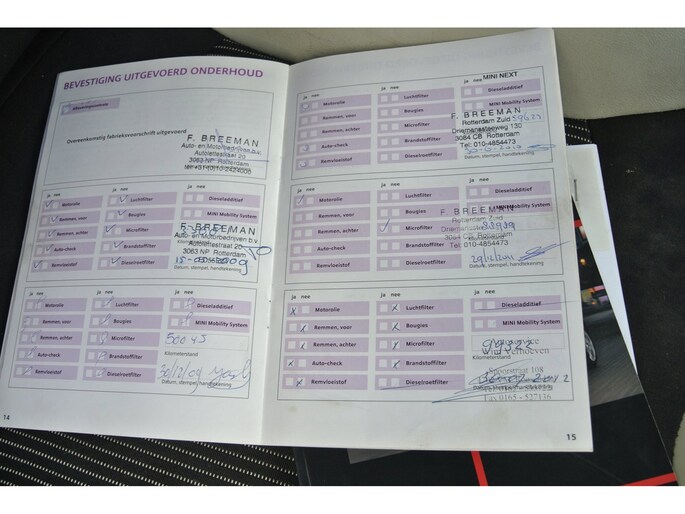 BEVESTIGING UITGEVOERD ONDERHOUD
Overeenkomstig fabrieksvoorschrift uitgevoerd
F. BREEMAN
Auto- en Motorbedrijven b.v.
3063 NP Rotterdam
Datum, stempel, handtekening
ja nee ja nee ja nee
Motorolie Luchtfilter Dieseladditief
Remmen, voor Bougies MINI Mobility System
Remmen, achter Microfilter
Auto-check Brandstoffilter
Remvloeistof Dieselroetfilter
F. BREEMAN
Auto- en Motorbedrijven b.v.
Autolettestraat 20
3063 NP Rotterdam
Datum, stempel, handtekening
ja nee ja nee ja nee
Motorolie Luchtfilter Dieseladditief
Remmen, voor Bougies MINI Mobility System
Remmen, achter Microfilter 50045
Kilometerstand
Auto-check Brandstoffilter
Remvloeistof Dieselroetfilter 30/12/09
Datum, stempel, handtekening
14
ja nee ja nee ja nee MINI NEXT
Motorolie Luchtfilter Dieseladditief
Remmen, voor Bougies MINI Mobility System
Remmen, achter Microfilter
Auto-check Brandstoffilter
Remvloeistof Dieselroetfilter
F. BREEMAN
Rotterdam Zuid 59623
Driemanssteeweg 130
3084 CB Rotterdam
Tel: 010-4854473
Datum, stempel, handtekening
ja nee ja nee ja nee
Motorolie Luchtfilter Dieseladditief
Remmen, voor Bougies MINI Mobility System
Remmen, achter Microfilter
Auto-check Brandstoffilter
Remvloeistof Dieselroetfilter
F. BREEMAN
Rotterdam Zuid
Rotterdam
Tel: 010-4854473
29/12/2011
Datum, stempel, handtekening
ja nee ja nee ja nee
Motorolie Luchtfilter Dieseladditief
Remmen, voor Bougies MINI Mobility System
Remmen, achter Microfilter
Auto-check Brandstoffilter Kilometerstand
Remvloeistof Dieselroetfilter
Spoorstraat 108
Fax 0165 - 527136
15